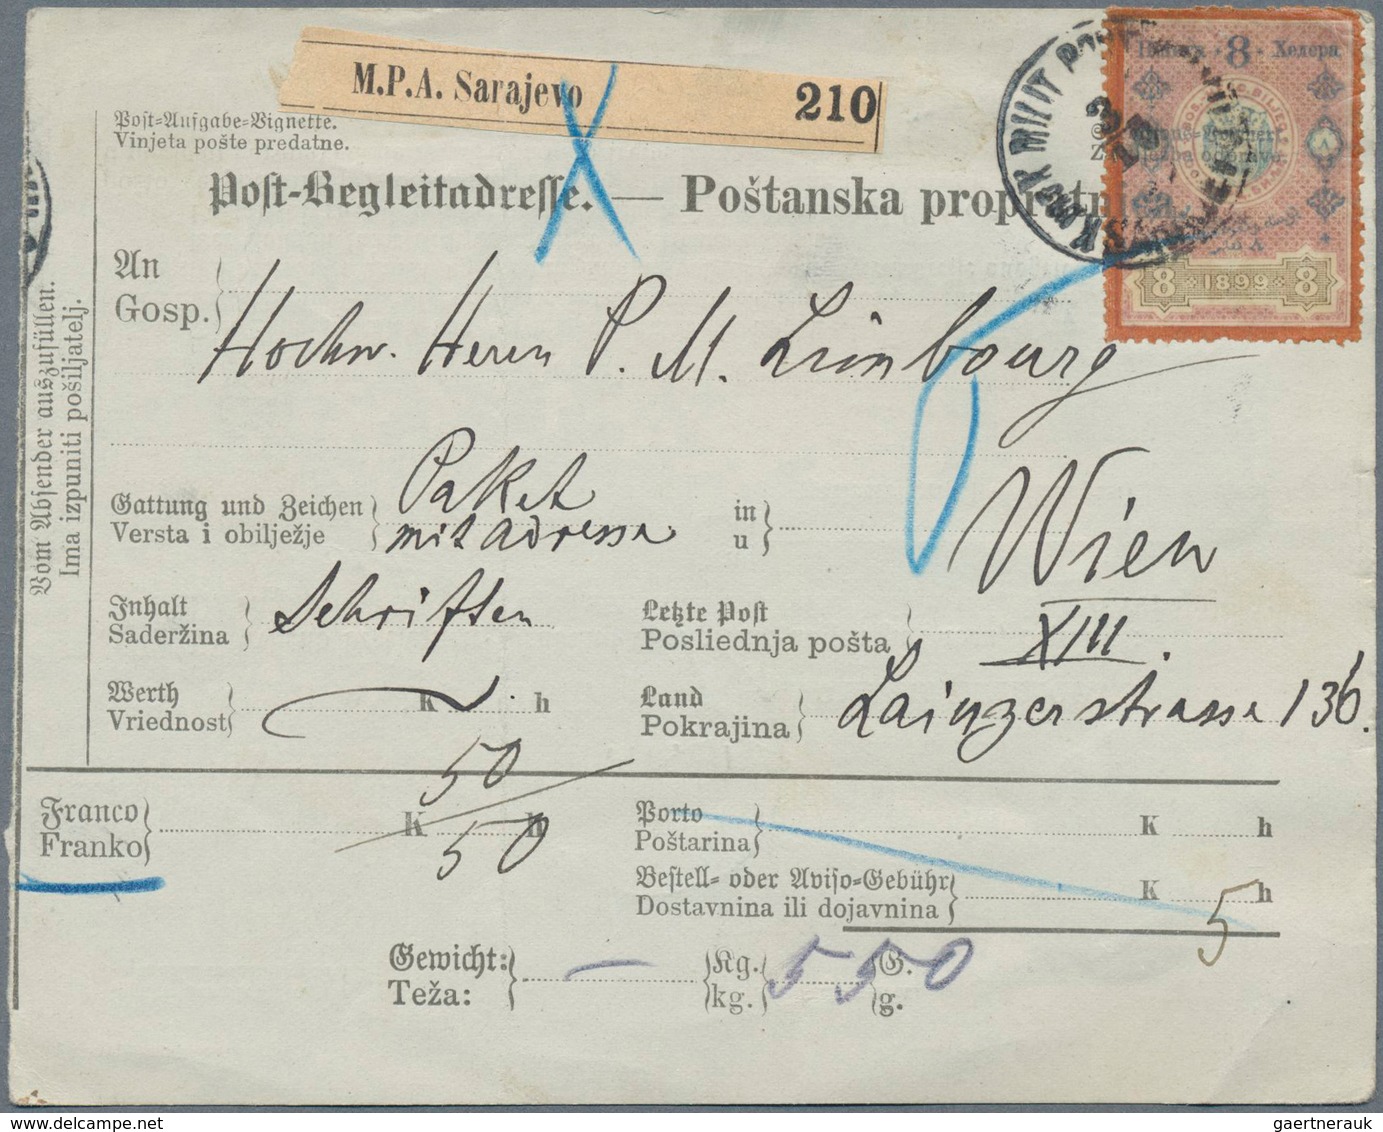 M.P.A. Sarajevo 210
Post-Aufgabe-Vignette.
Vinjeta pošte predatne.
Post-Begleitadresse. — Poštanska
K und K MILIT POST
8 Хелера
8 1899 8
An
Gosp.
Hochw. Herrn P. M. Limbourg
Vom Absender auszufüllen.
Ima izpuniti pošiljatelj.
Gattung und Zeichen
Versta i obilježje
Paket
mit Adresse
in
u
Wien
Inhalt
Saderžina
Schriften
Letzte Post
Posliednja pošta
XIII.
Werth
Vriednost
K h
Land
Pokrajina
Lainzerstrasse 136.
Franco
Franko
50
K h
50
Porto
Poštarina
K h
Bestell- oder Aviso-Gebühr
Dostavnina ili dojavnina
K 5 h
Gewicht:
Teža:
— Kg.
kg.
550 G.
g.
gaertnerauk
www.delcampe.net